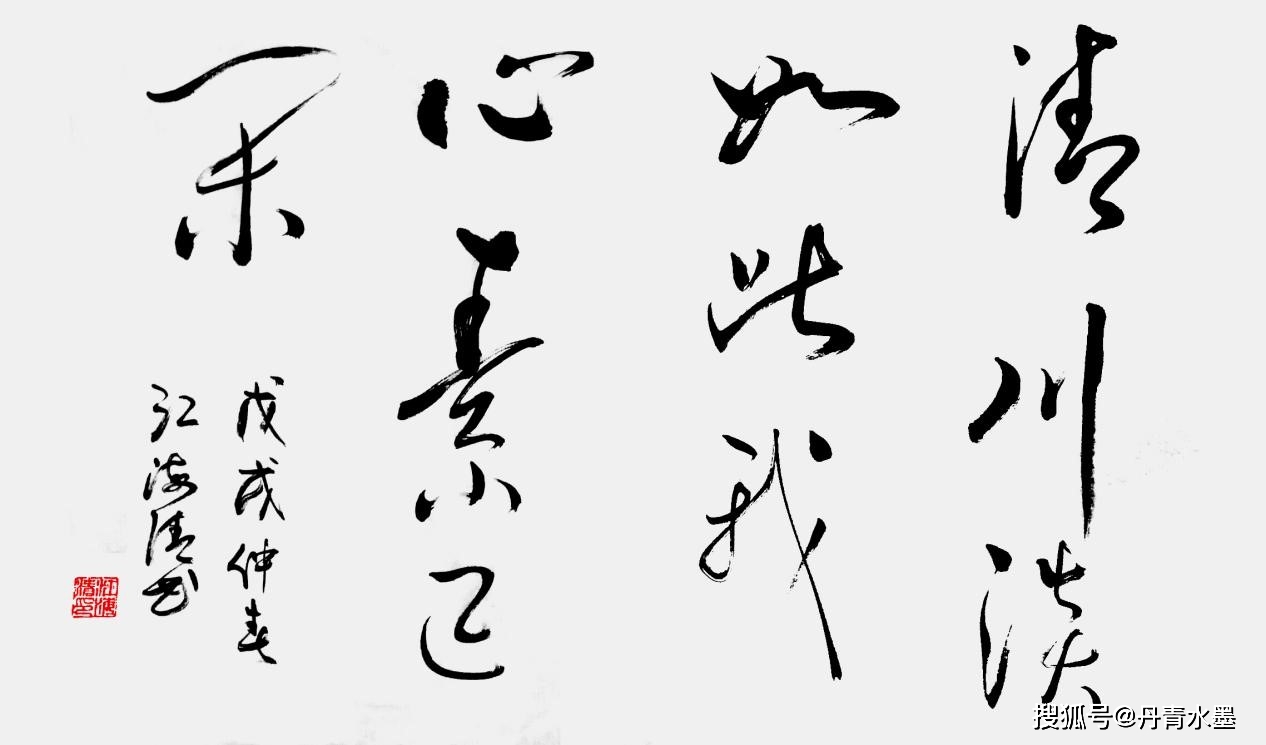 清川淡
如此我
心素已
闲
戊戌仲春
江海清书
搜狐号@丹青水墨